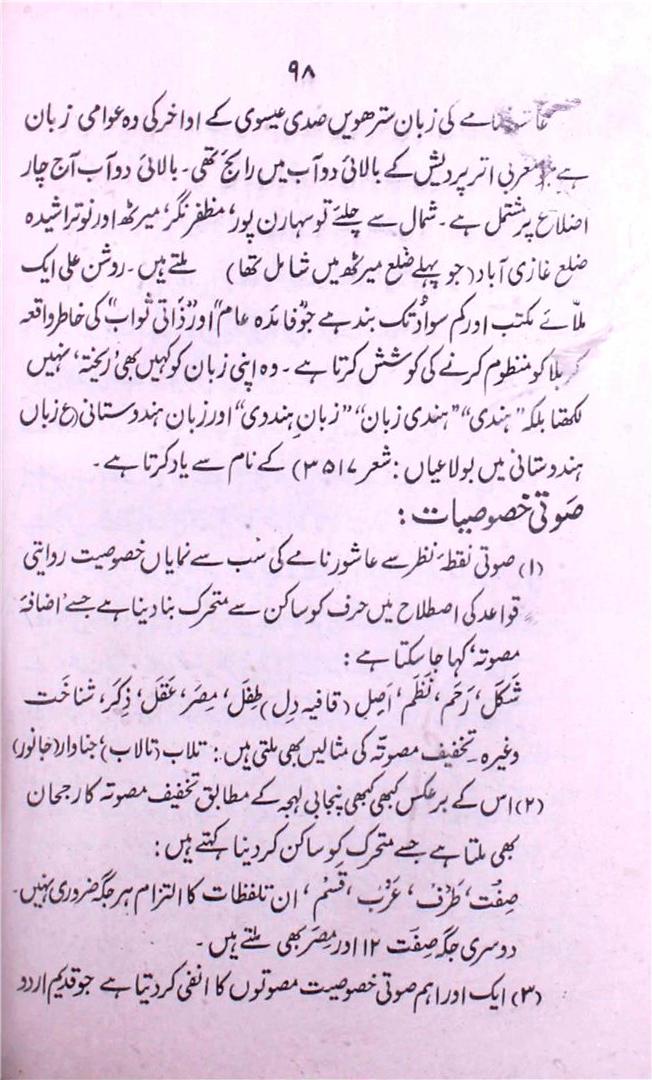 ۹۸
نامے کی زبان سترھویں صدی عیسوی کے اواخر کی وہ عوامی زبان
ہے جو مغربی اتر پردیش کے بالائی دوآب میں رائج تھی۔ بالائی دوآب آج چار
اضلاع پر مشتمل ہے۔ شمال سے چلئے تو سہارن پور، مظفر نگر، میرٹھ اور نو تراشیدہ
ضلع غازی آباد (جو پہلے ضلع میرٹھ میں شامل تھا) ملتے ہیں۔ روشن علی ایک
ملّائے مکتب اور کم سواد تک بند ہے جو "فائدہ عام" اور "ذاتی ثواب" کی خاطر واقعہ
کربلا کو منظوم کرنے کی کوشش کرتا ہے۔ وہ اپنی زبان کو کہیں بھی 'ریختہ' نہیں
لکھتا بلکہ "ہندی" "ہندی زبان" "زبانِ ہندوی" اور زبان ہندوستانی (ع زباں
ہندوستانی میں بولا عیاں : شعر ۳۵۱۷) کے نام سے یاد کرتا ہے۔
صَوتی خصوصیات :
(۱) صوتی نقطۂ نظر سے عاشور نامے کی سب سے نمایاں خصوصیت روایتی
قواعد کی اصطلاح میں حرف کو ساکن سے متحرک بنا دینا ہے جسے 'اضافۂ
مصوتہ' کہا جا سکتا ہے :
شَکَل، رَحَم، نَظَم، اَصِل (قافیہ دِل) طِفَل، مِصَر، عَقَل، ذِکَر، شناخَت
وغیرہ۔ تخفیف مصوتہ کی مثالیں بھی ملتی ہیں : تلاب (تالاب)، جناوار (جانور)
(۲) اس کے برعکس کبھی کبھی پنجابی لہجہ کے مطابق تخفیف مصوتہ کا رجحان
بھی ملتا ہے جسے متحرک کو ساکن کر دینا کہتے ہیں :
صِفْت، طَرْف، عَرْب، قَسْم، ان تلفظات کا التزام ہر جگہ ضروری نہیں۔
دوسری جگہ صِفَت ۱۲ اور مِصَر بھی ملتے ہیں۔
(۳) ایک اور اہم صوتی خصوصیت مصوتوں کا انفی کر دیتا ہے جو قدیم اردو